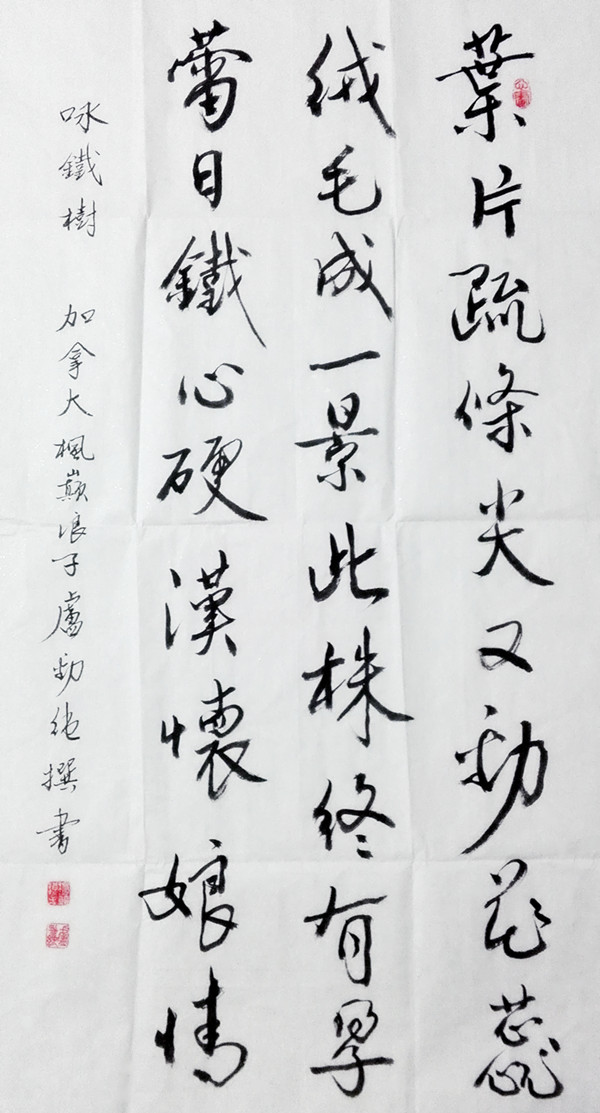 葉片疏條尖又勁花蕊
絨毛成一景此株終有孕
蕾日鐵心硬漢懷娘情
咏鐵樹 加拿大楓巔浪子盧勁撰書